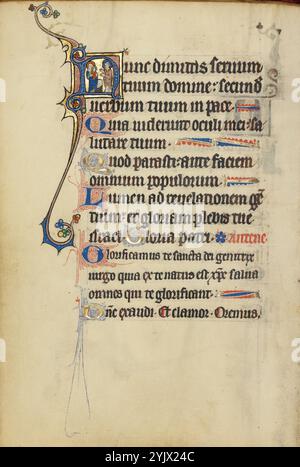 Nunc dimittis seruum
tuum domine: secund
uerbum tuum in pace.
Quia uiderunt oculi mei: sa
lutare tuum.
Quod parasti: ante faciem
omnium populorum.
Lumen ad reuelationem gen
tium: et gloriam plebis tue
israel. Gloria patri. Antene
Glorificamus te sancta dei genitrix
uirgo quia ex te natus est xpc salua
omnes qui te glorificant.
Dne exaudi. Et clamor. Oremus.
alamy
Image ID: 2YJX24C
www.alamy.com